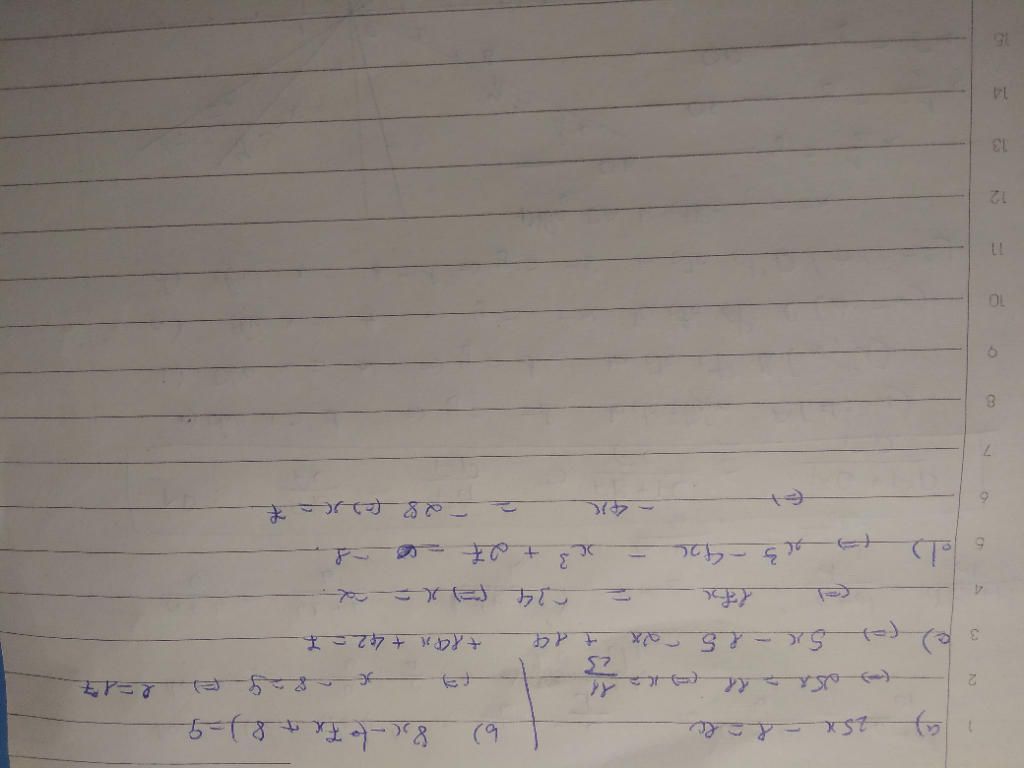 1 a) 25x - 1 = 10 b) 8x - (7x + 8) = 9
2 (=) 25x = 11 (=) x = 11/25 (=) x - 8 = 9 (=) x = 17
3 c) (=) 5x - 15 - 2x + 14 + 14x + 42 = 7
4 (=) 17x = -34 (=) x = -2
5 d) (=) x³ - 4x - x³ + 27 = -1
6 (=) -4x = -28 (=) x = 7
7
8
9
10
11
12
13
14
15